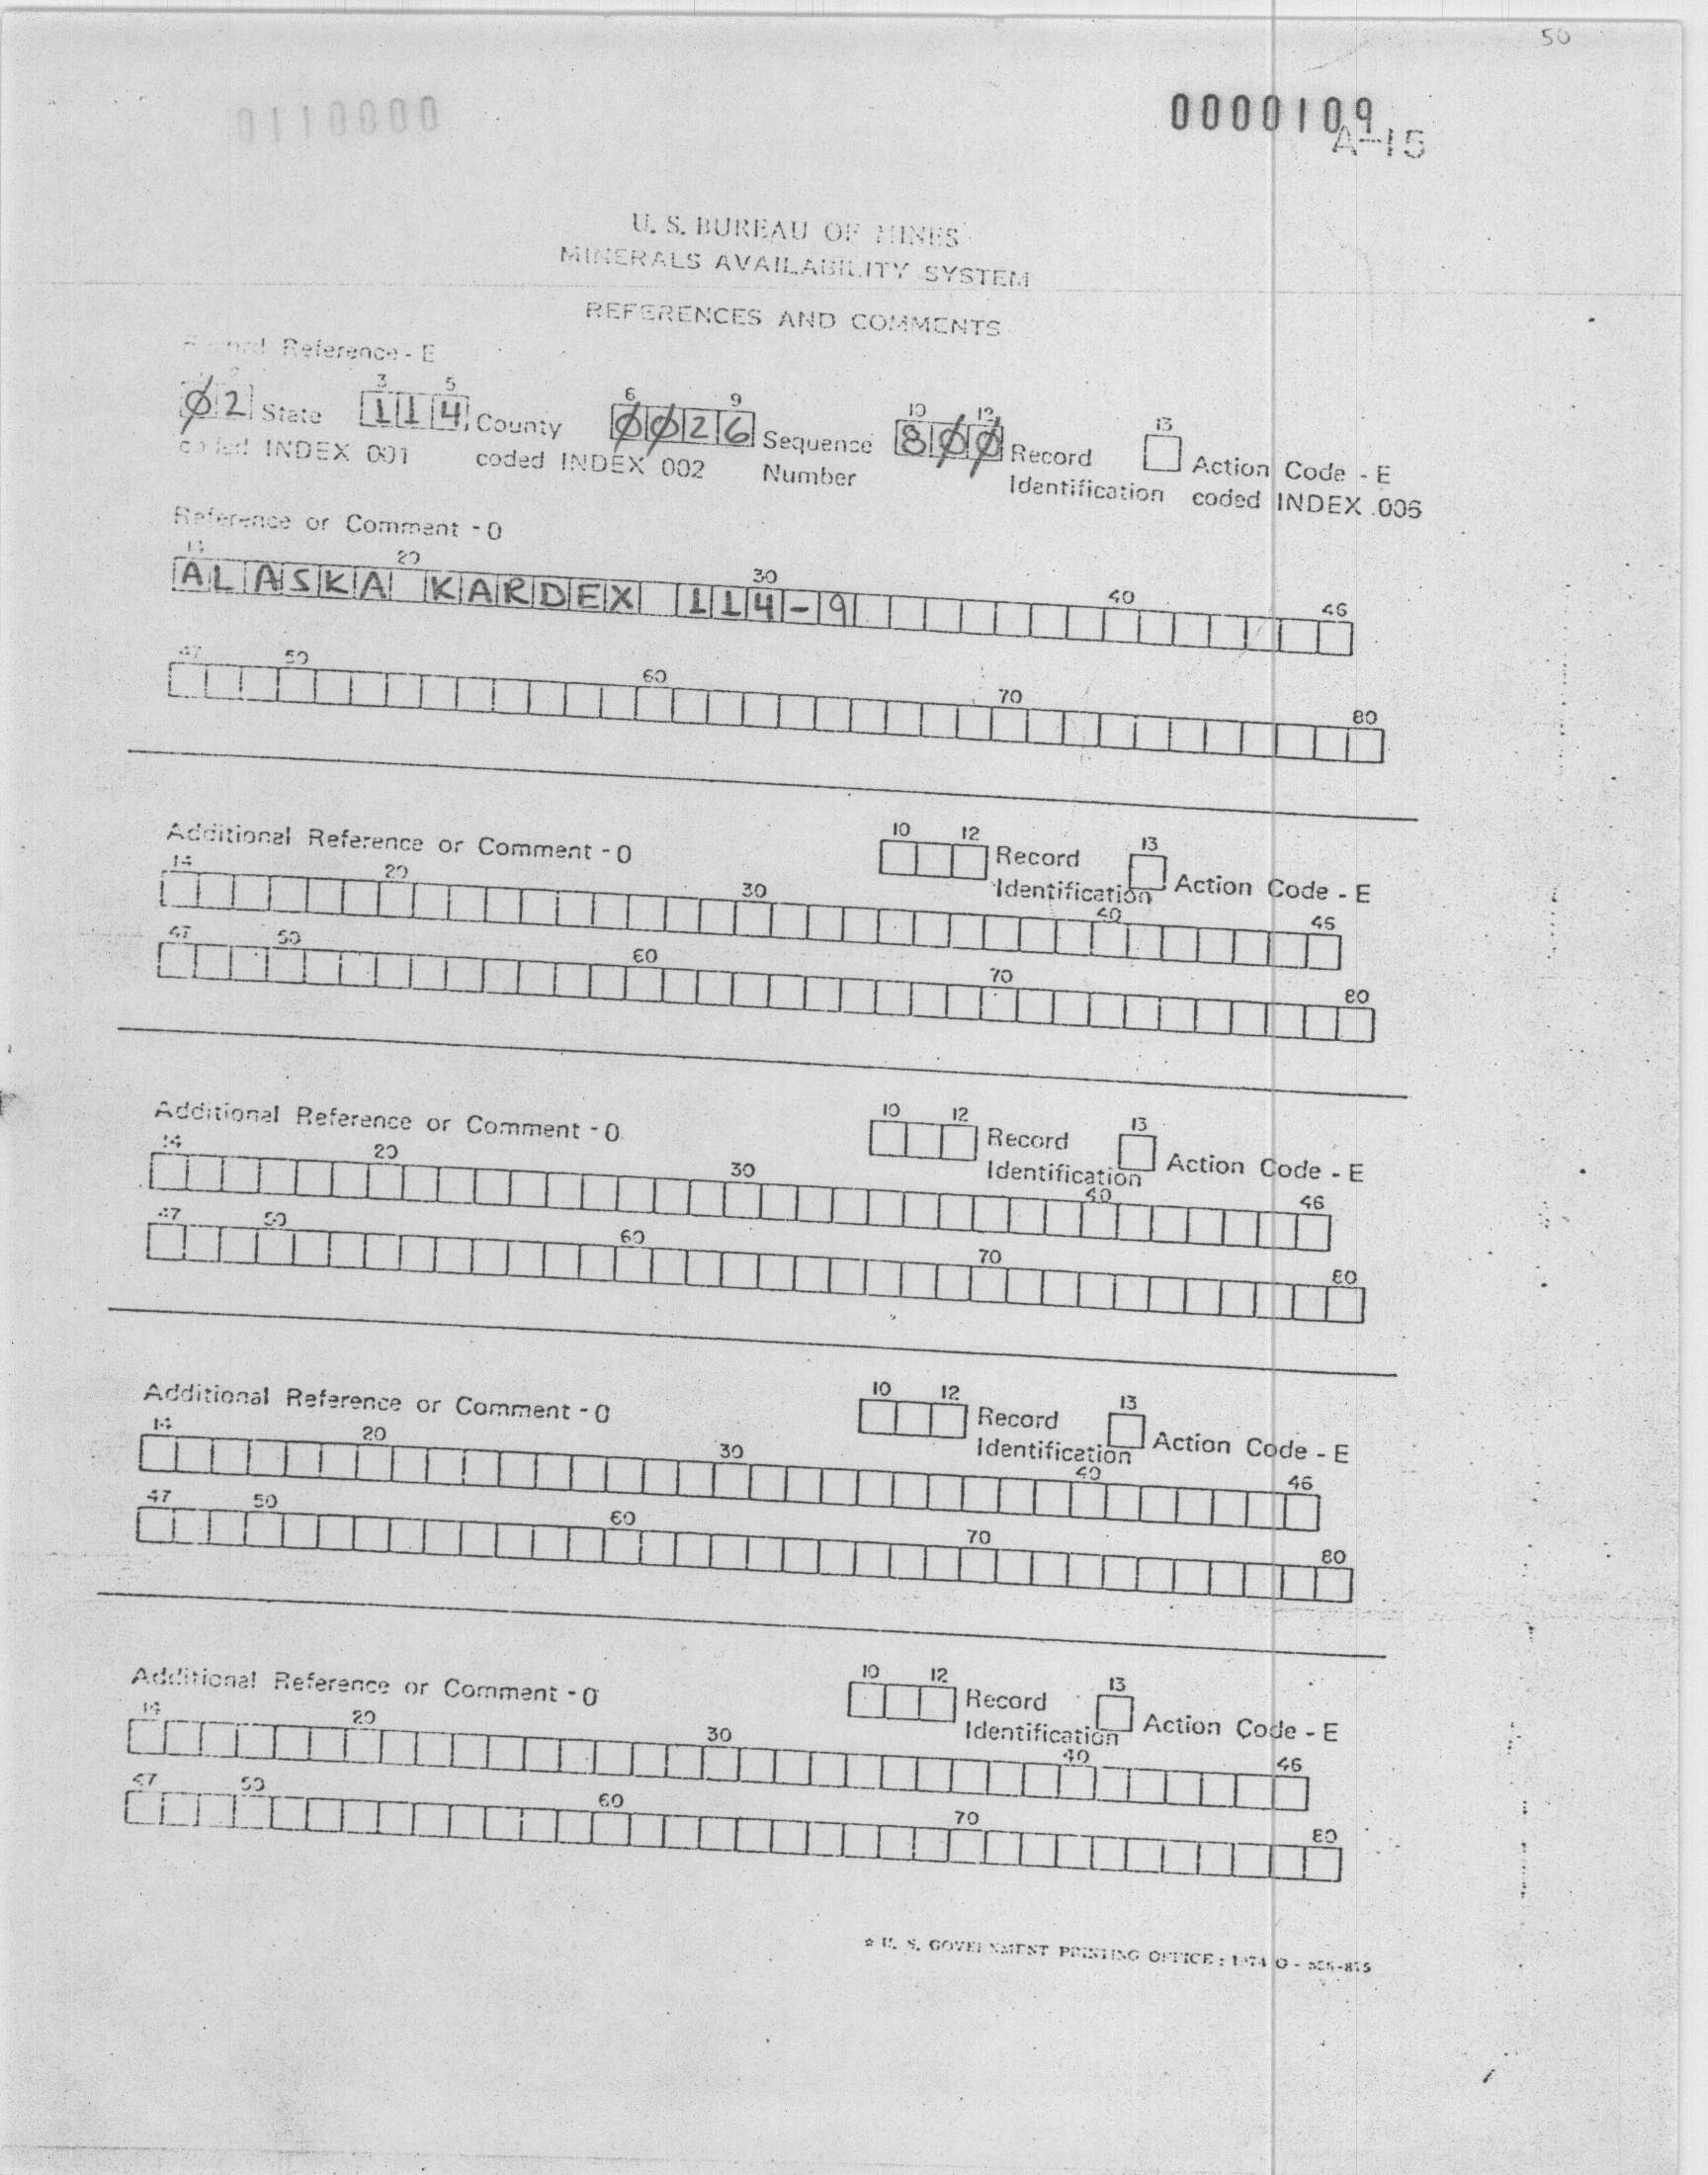 50
0110000
0000109
A-15
U. S. BUREAU OF MINES
MINERALS AVAILABILITY SYSTEM
REFERENCES AND COMMENTS
Record Reference - E
3 5 6 9 10 12 13
Ø2 State 114 County ØØ26 Sequence 8ØØ Record Action Code - E
coded INDEX 001 coded INDEX 002 Number Identification coded INDEX 006
Reference or Comment - O
14 20 30 40 46
ALASKA KARDEX 114-9
47 50 60 70 80
Additional Reference or Comment - O 10 12 Record 13 Action Code - E
Identification
14 20 30 40 46
47 50 60 70 80
Additional Reference or Comment - O 10 12 Record 13 Action Code - E
Identification
14 20 30 40 46
47 50 60 70 80
Additional Reference or Comment - O 10 12 Record 13 Action Code - E
Identification
14 20 30 40 46
47 50 60 70 80
Additional Reference or Comment - O 10 12 Record 13 Action Code - E
Identification
14 20 30 40 46
47 50 60 70 80
U. S. GOVERNMENT PRINTING OFFICE : 1974 O -